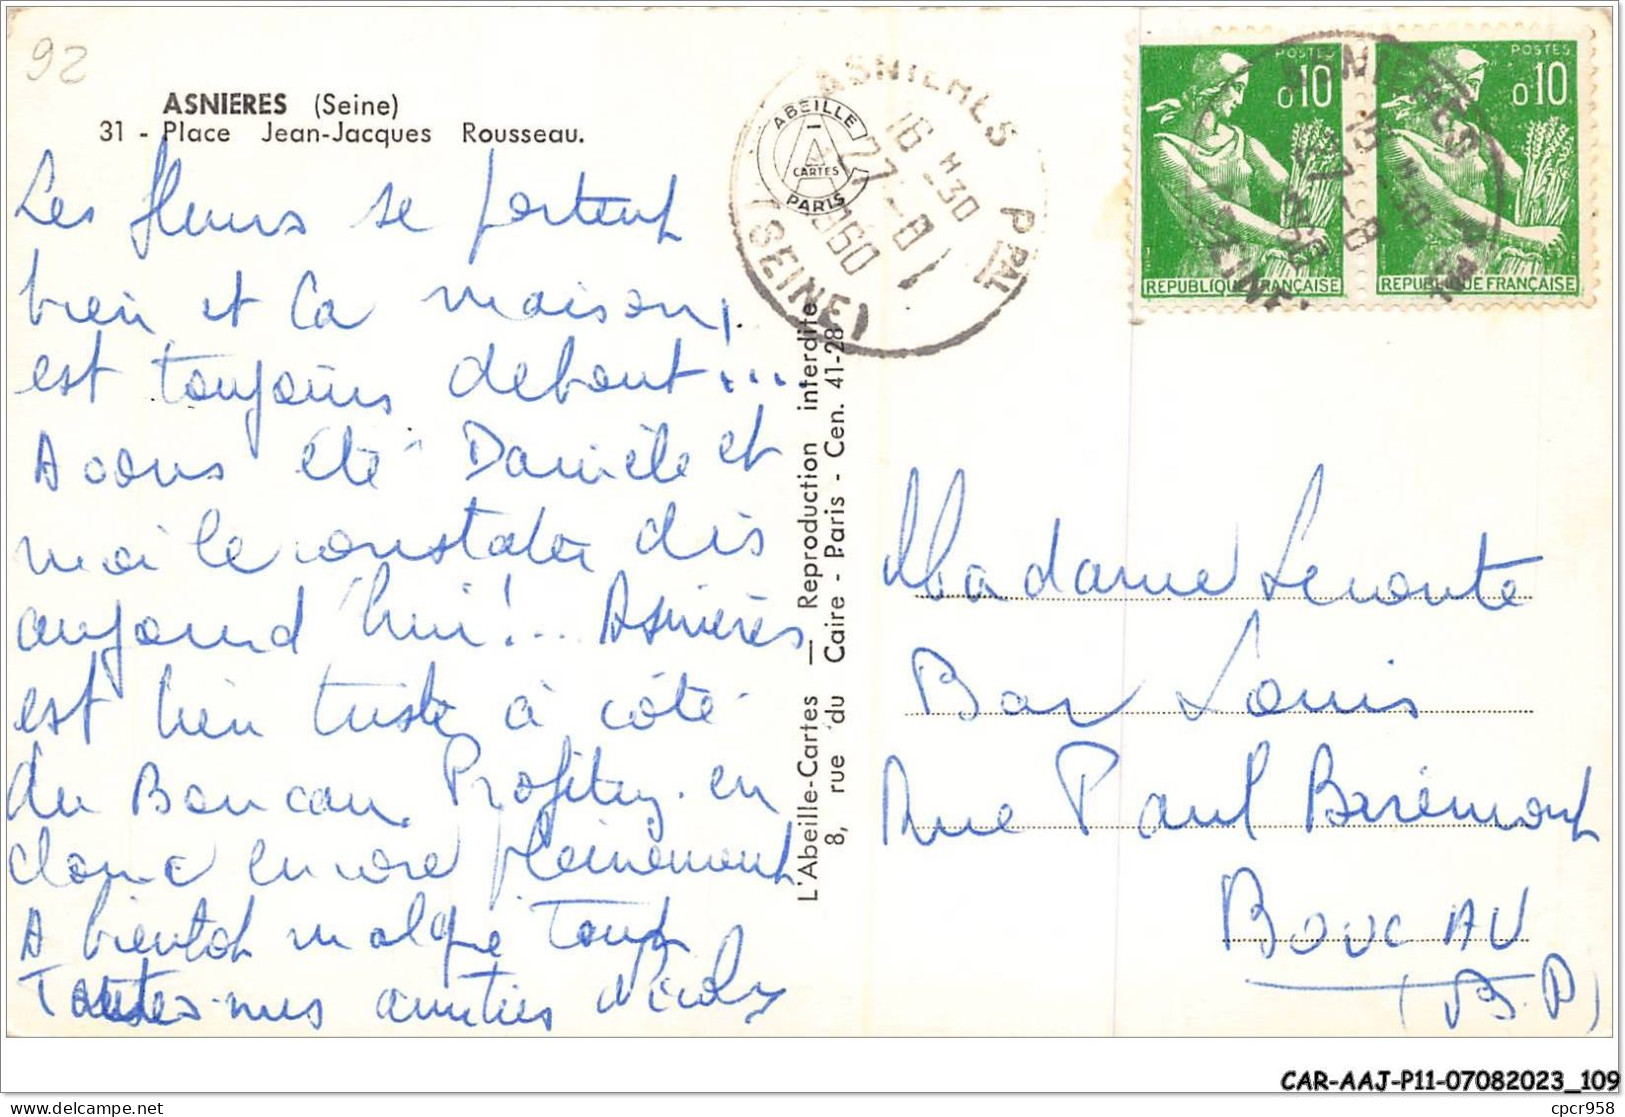 92
ASNIERES (Seine)
31 - Place Jean-Jacques Rousseau.
Les fleurs se portent
bien et la maison,
est toujours debout...
Avons été Danièle et
moi le constater dès
aujourd'hui!... Asnières
est bien triste à côté
du Boucau. Profitez. en
donc encore pleinement
A bientôt malgré tout
Toutes mes amitiés
ABEILLE
A
CARTES
PARIS
ASNIERES PPAL
16 H 30
27 - 8
1960
(SEINE)
L'Abeille-Cartes — Reproduction interdite
8, rue du Caire - Paris - Cen. 41-28
POSTES
0,10
REPUBLIQUE FRANÇAISE
POSTES
0,10
REPUBLIQUE FRANÇAISE
Madame
Bar Louis
Rue Paul Biremont
BOUCAU
(B.P)
CAR-AAJ-P11-07082023_109
delcampe.net
cpcr958